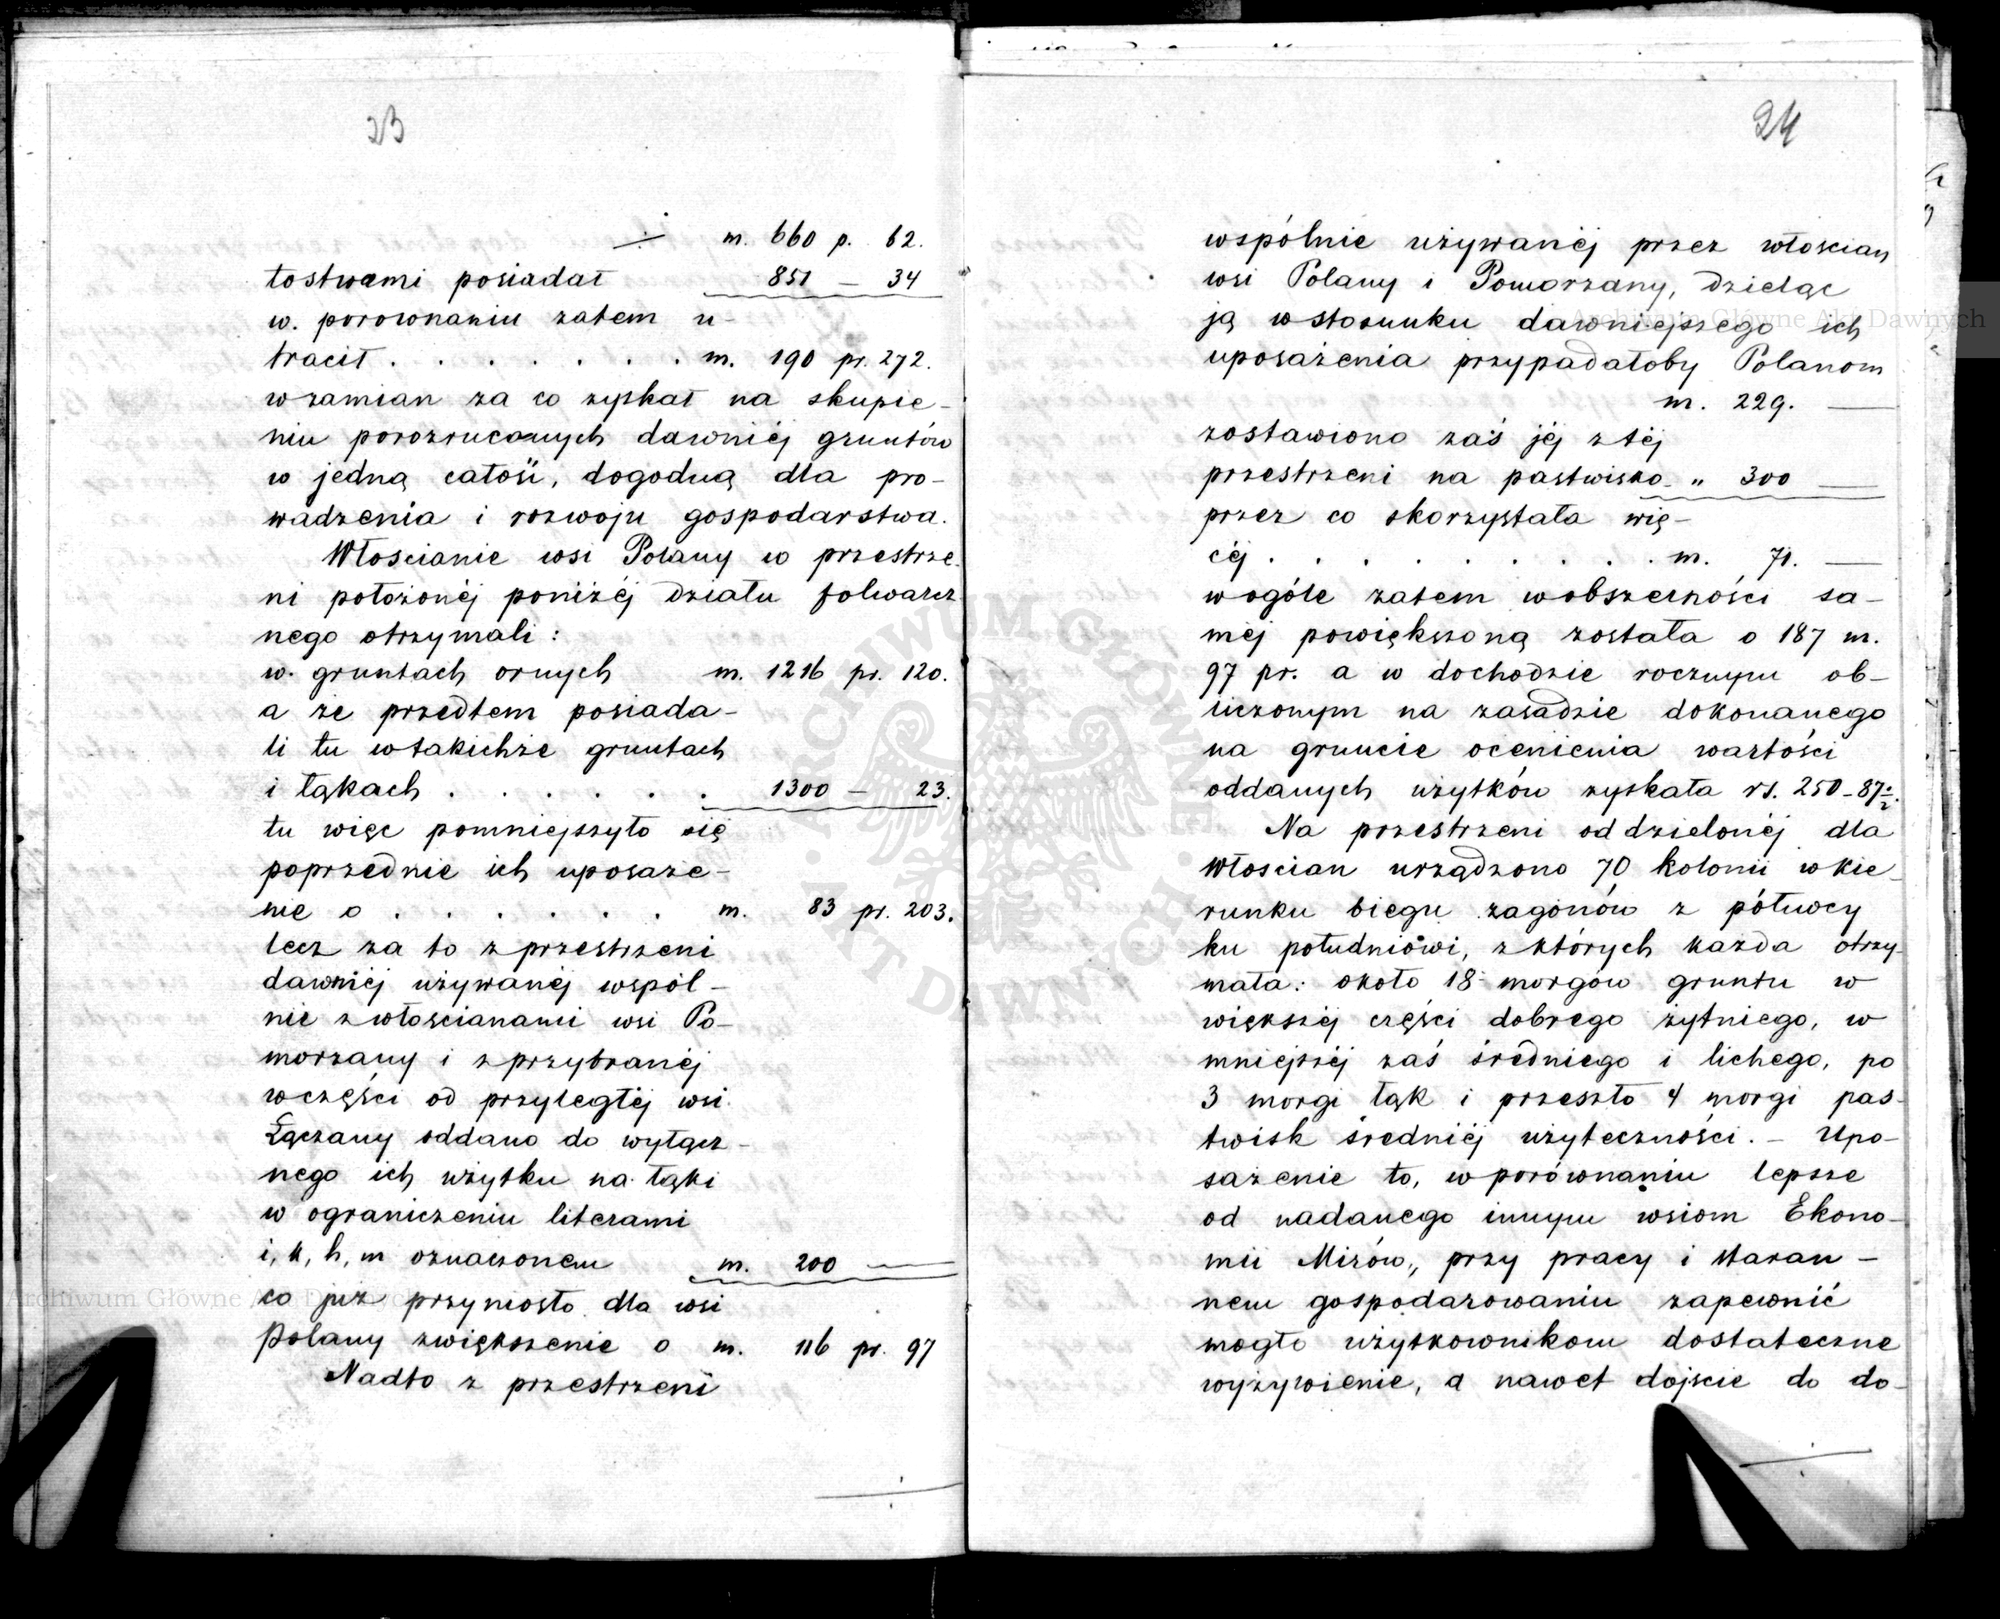 23
÷ m. 660 p. 62.
tostwami posiadał 851 — 34
w. porownaniu zatem u-
tracił . . . . . . . m. 190 pr. 272.
wzamian za co zyskał na skupie-
niu porozrucanych dawniéj gruntów
w jedną całość, dogodną dla pro-
wadzenia i rozwoju gospodarstwa.
Włoscianie wsi Polany w przestrze-
ni położonéj poniżéj działu folwarcz
nego otrzymali:
w. gruntach ornych m. 1216 pr. 120.
a że przedtem posiada-
li tu wtakichże gruntach
i łąkach . . . . . . 1300 — 23.
tu więc pomniejszyło się
poprzednie ich uposaże-
nie o . . . . . . m. 83 pr. 203.
lecz za to zprzestrzeni
dawniéj używanéj wspól-
nie zwłoscianami wsi Po-
morzany i zprzybranéj
wczęści od przyległéj wsi
Łączany oddano do wyłącz-
nego ich użytku na łąki
w ograniczeniu literami
i, k, h, m oznaczonem m. 200 —
co już przyniosło dla wsi
Polany zwiększenie o m. 116 pr. 97
Nadto z przestrzeni
24
wspólnie używanéj przez włoscian
wsi Polany i Pomorzany, dzieląc
ją wstosunku dawniejszego ich
uposażenia przypadałoby Polanom
m. 229. —
zostawiono zaś jéj ztéj
przestrzeni na pastwisko „ 300 —
przez co skorzystała wię-
céj . . . . . . . . . m. 71. —
wogóle zatem wobszerności sa-
méj powiększoną została o 187 m.
97 pr. a w dochodzie rocznym ob-
liczonym na zasadzie dokonanego
na gruncie ocenienia wartości
oddanych użytków zyskała rs. 250-87½.
Na przestrzeni oddzielonéj dla
Włoscian urządzono 70 kolonii wkie-
runku biegu zagonów z północy
ku południowi, zktórych każda otrzy-
mała: około 18 morgów gruntu w
większéj części dobrego żytniego, w
mniejszéj zaś średniego i lichego, po
3 morgi łąk i przeszło 4 morgi pas-
twisk średniéj użyteczności. — Upo-
sażenie to, wporównaniu lepsze
od nadanego innym wsiom Ekono-
mii Mirów, przy pracy i staran-
nem gospodarowaniu zapewnić
mogło użytkownikom dostateczne
wyżywienie, a nawet dojście do do-
÷
÷
ARCHIWUM GŁÓWNE
AKT DAWNYCH
Archiwum Główne Akt Dawnych
Archiwum Główne Akt Dawnych